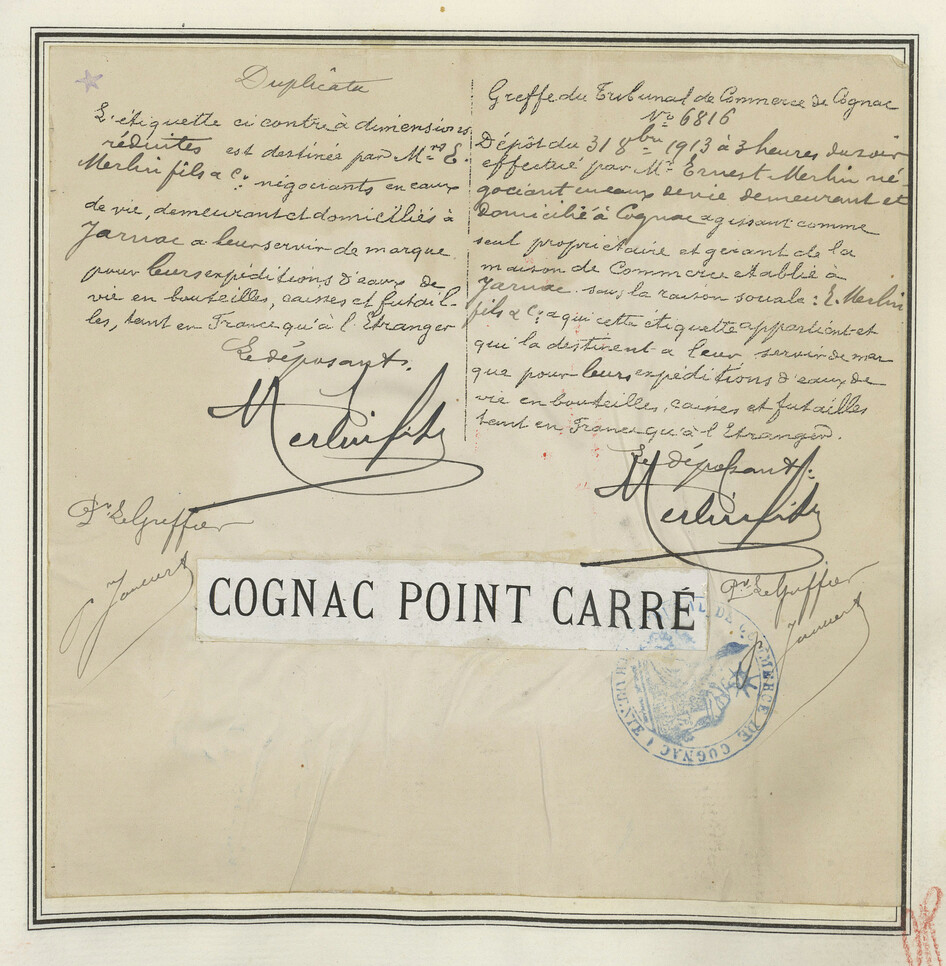 Duplicata
L'étiquette ci contre à dimensions
réduites est destinée par Mrs E.
Merlin fils & Cie. négociants en eaux
de vie, demeurant et domiciliés à
Jarnac a leur servir de marque
pour leurs expéditions d'eaux de
vie en bouteilles, caisses et futail-
les, tant en France qu'à l'Etranger
Le déposant.
Merlin fils
Pr. Le Greffier
Greffe du Tribunal de Commerce de Cognac
No 6816
Dépôt du 31 8bre 1913 à 3 heures du soir
effectué par Mr Ernest Merlin né-
gociant en eaux de vie demeurant et
domicilié à Cognac agissant comme
seul propriétaire et gérant de la
maison de Commerce etablie à
Jarnac sous la raison sociale : E. Merlin
fils & Cie. a qui cette étiquette appartient et
qui la destinent a leur servir de mar
que pour leurs expéditions d'eaux de
vie en bouteilles, caisses et futailles
tant en France qu'à l'Etranger.
Le déposant.
Merlin fils
Pr. Le Greffier
COGNAC POINT CARRÉ
DE COMMERCE DE COGNAC